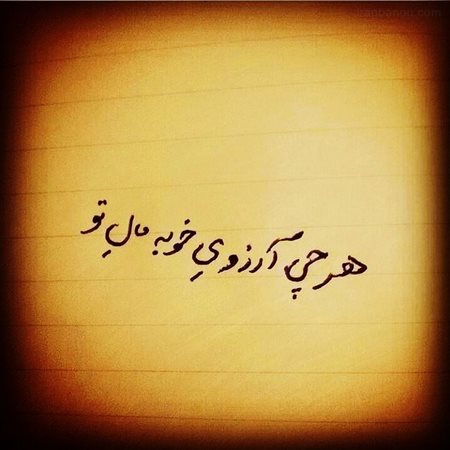 هر چی آرزویِ خوبه مالِ تو